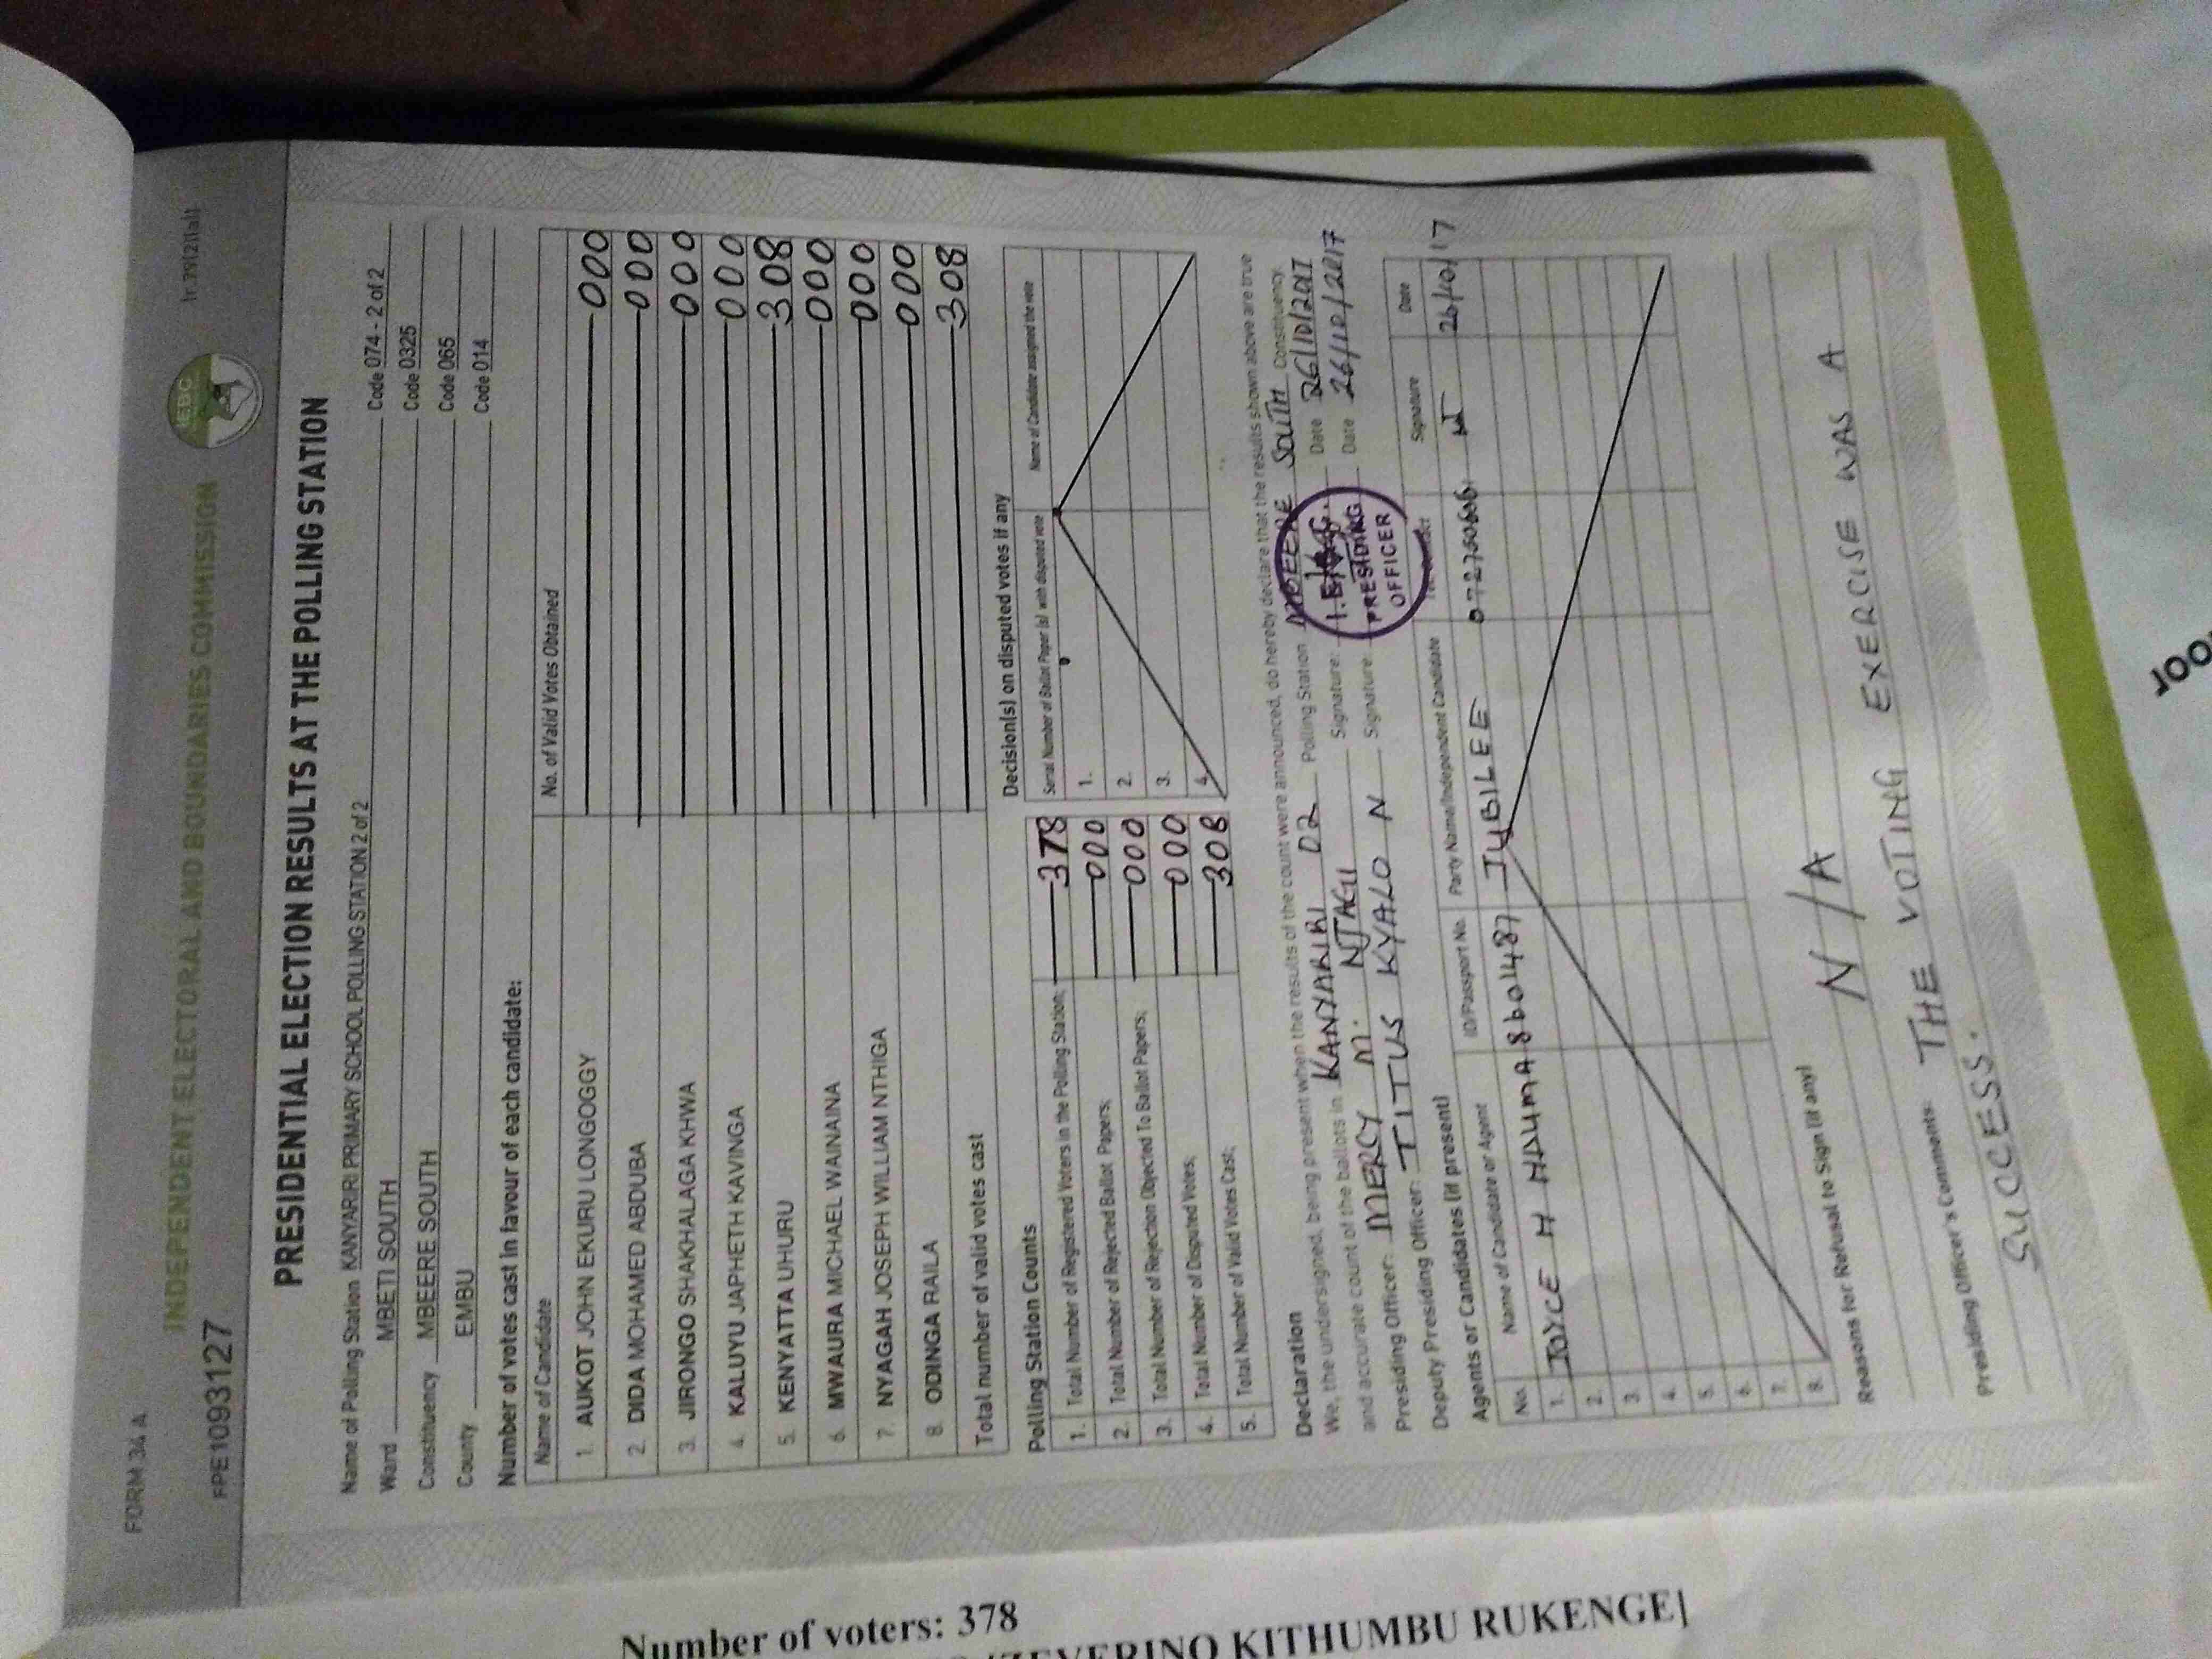 FORM 34 A
INDEPENDENT ELECTORAL AND BOUNDARIES COMMISSION
IEBC
(r.79(2)(a))
FPE1093127
PRESIDENTIAL ELECTION RESULTS AT THE POLLING STATION
Name of Polling Station KANYARIRI PRIMARY SCHOOL POLLING STATION 2 of 2 Code 074 - 2 of 2
Ward MBETI SOUTH Code 0325
Constituency MBEERE SOUTH Code 065
County EMBU Code 014
Number of votes cast in favour of each candidate:
Name of Candidate No. of Valid Votes Obtained
1. AUKOT JOHN EKURU LONGOGGY 000
2. DIDA MOHAMED ABDUBA 000
3. JIRONGO SHAKHALAGA KHWA 000
4. KALUYU JAPHETH KAVINGA 000
5. KENYATTA UHURU 308
6. MWAURA MICHAEL WAINAINA 000
7. NYAGAH JOSEPH WILLIAM NTHIGA 000
8. ODINGA RAILA 000
Total number of valid votes cast 308
Polling Station Counts
1. Total Number of Registered Voters in the Polling Station; 378
2. Total Number of Rejected Ballot Papers; 000
3. Total Number of Rejection Objected To Ballot Papers; 000
4. Total Number of Disputed Votes; 000
5. Total Number of Valid Votes Cast; 308
Decision(s) on disputed votes if any
Serial Number of Ballot Paper (s) with disputed vote Name of Candidate assigned the vote
1.
2.
3.
4.
Declaration
We, the undersigned, being present when the results of the count were announced, do hereby declare that the results shown above are true
and accurate count of the ballots in KANYARIRI 02 Polling Station MBEERE SOUTH Constituency.
Presiding Officer: MERCY M. NJAGU Signature: Date 26/10/2017
Deputy Presiding Officer: TITUS KYALO N Signature Date 26/10/2017
PRESIDING
OFFICER
Agents or Candidates (if present)
No. Name of Candidate or Agent ID/Passport No. Party Name/Independent Candidate Signature Date
1. JOYCE M 8601487 JUBILEE 0727506061 26/10/17
2.
3.
4.
5.
6.
7.
8.
Reasons for Refusal to Sign (if any)
N/A
Presiding Officer's Comments: THE VOTING EXERCISE WAS A
SUCCESS.
Number of voters: 378
KITHUMBU RUKENGE]